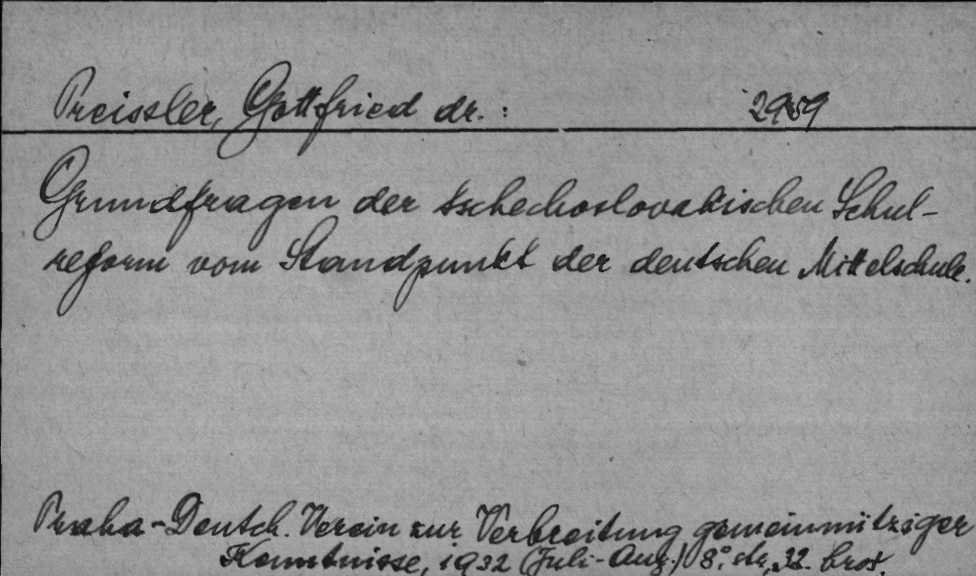 Preissler, Gottfried dr. : 2959
Grundfragen der tschechoslovakischen Schul-
reform vom Standpunkt der deutschen Mittelschule.
Praha-Deutch. Verein zur Verbreitung gemeinnütziger
Kenntnisse, 1932 (Juli-Aug.) 8.° str. 32. brož.